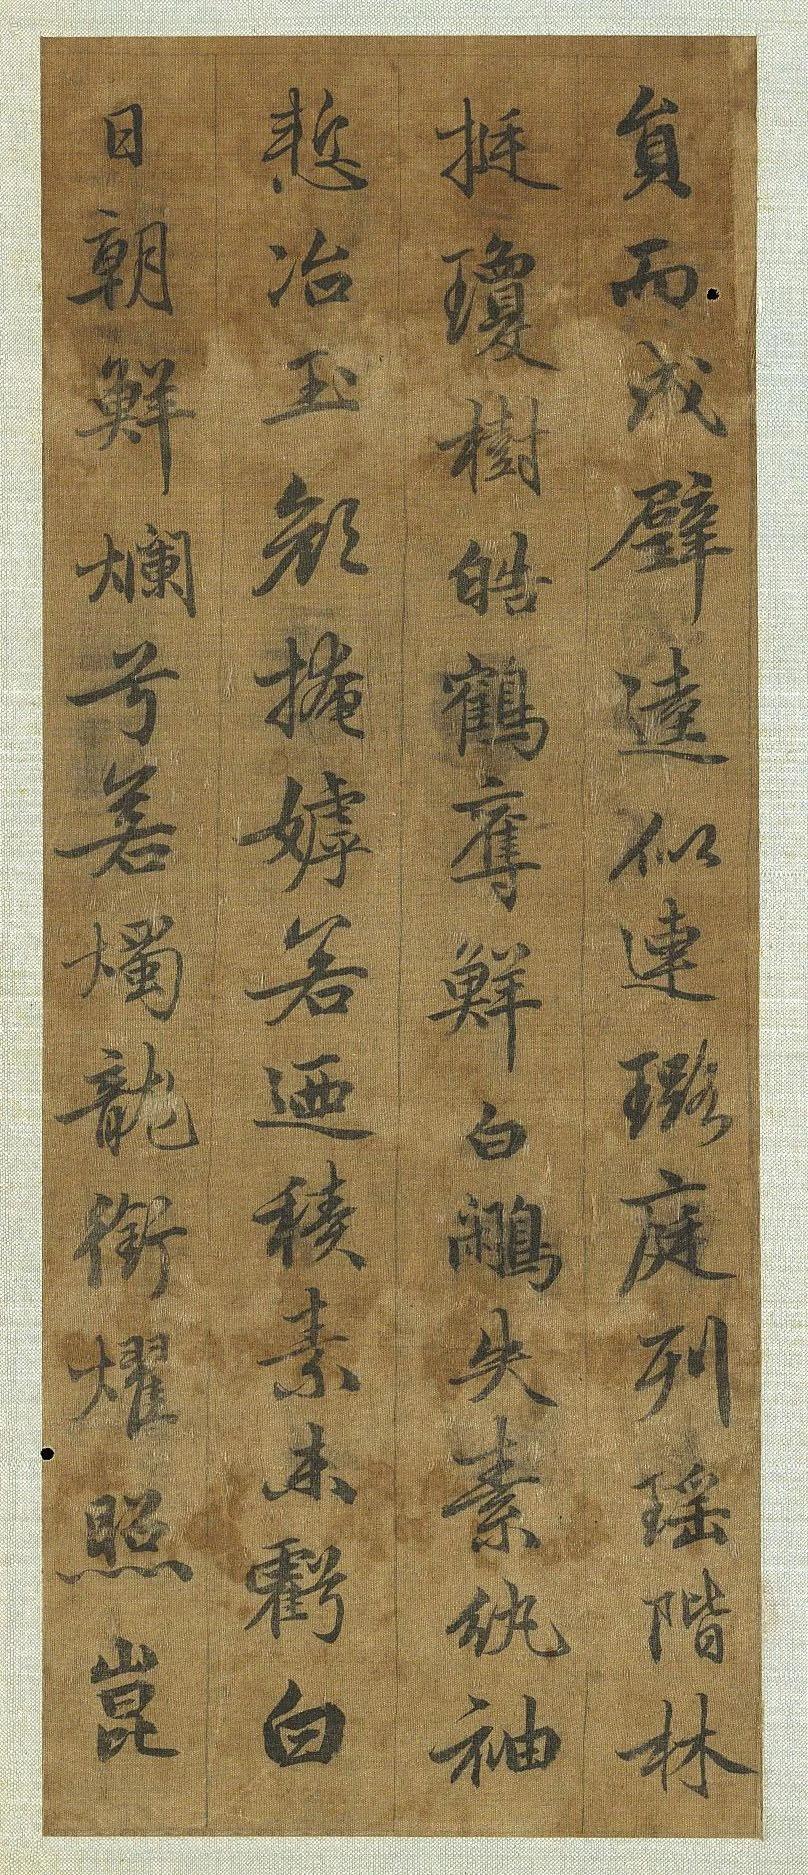 員而成璧逵似連璐庭列瑤階林
挺瓊樹皓鶴奪鮮白鷳失素紈袖
慙冶玉顏掩嫮若迺積素未虧白
日朝鮮爛兮若燭龍銜燿照崑